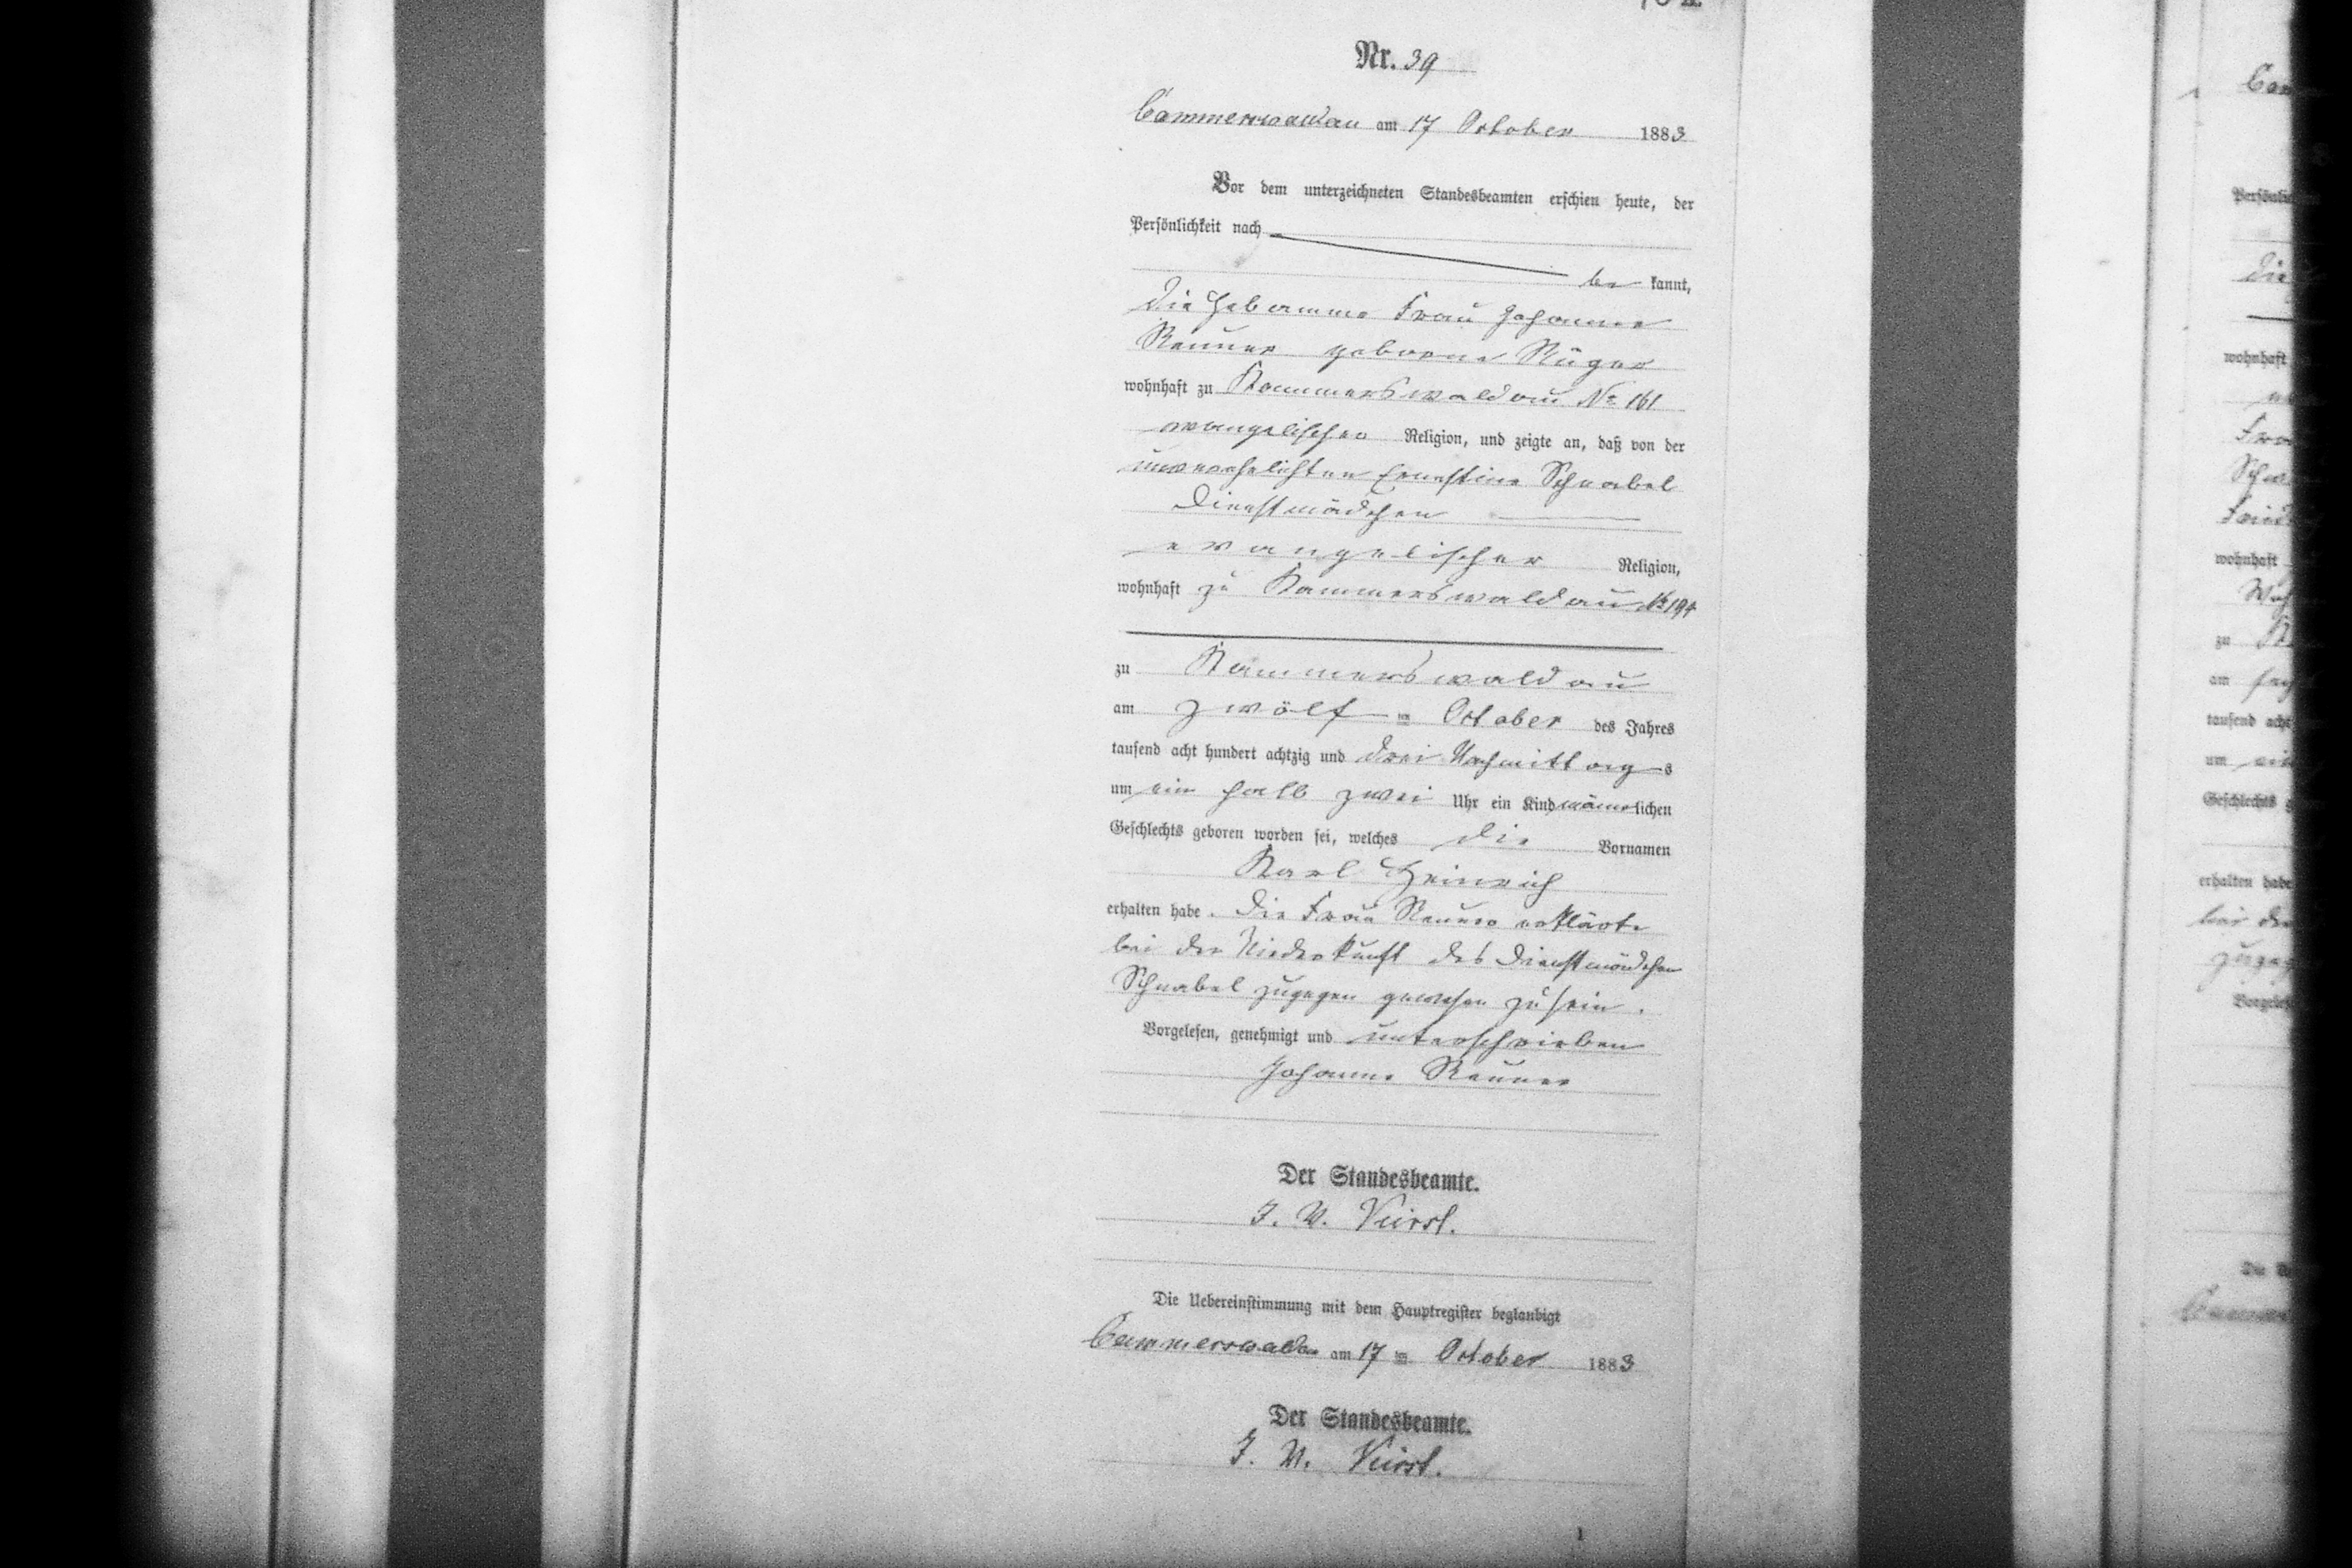 Nr. 39
Cammerswaldau am 17 October 1883
Vor dem unterzeichneten Standesbeamten erschien heute, der
Persönlichkeit nach
be kannt,
die Hebamme Frau Johanne
Renner geborene Rüger
wohnhaft zu Kammerswaldau No 161
evangelischer Religion, und zeigte an, daß von der
unverehelichten Ernestine Schnabel
Dienstmädchen
evangelischer Religion,
wohnhaft zu Kammerswaldau No 194
zu Kammerswaldau
am zwölf ten October des Jahres
tausend acht hundert achtzig und drei Nachmittags
um ein halb zwei Uhr ein Kind männlichen
Geschlechts geboren worden sei, welches die Vornamen
Karl Heinrich
erhalten habe. Die Frau Renner erklärte
bei der Niederkunft des Dienstmädchen
Schnabel zugegen gewesen zu sein.
Vorgelesen, genehmigt und unterschrieben
Johanne Renner
Der Standesbeamte.
J. V.
Die Uebereinstimmung mit dem Hauptregister beglaubigt
Cammerswaldau am 17 ten October 1883
Der Standesbeamte.
J. V.
1
wohnhaft
wohnhaft
zu
am
um
erhalten habe